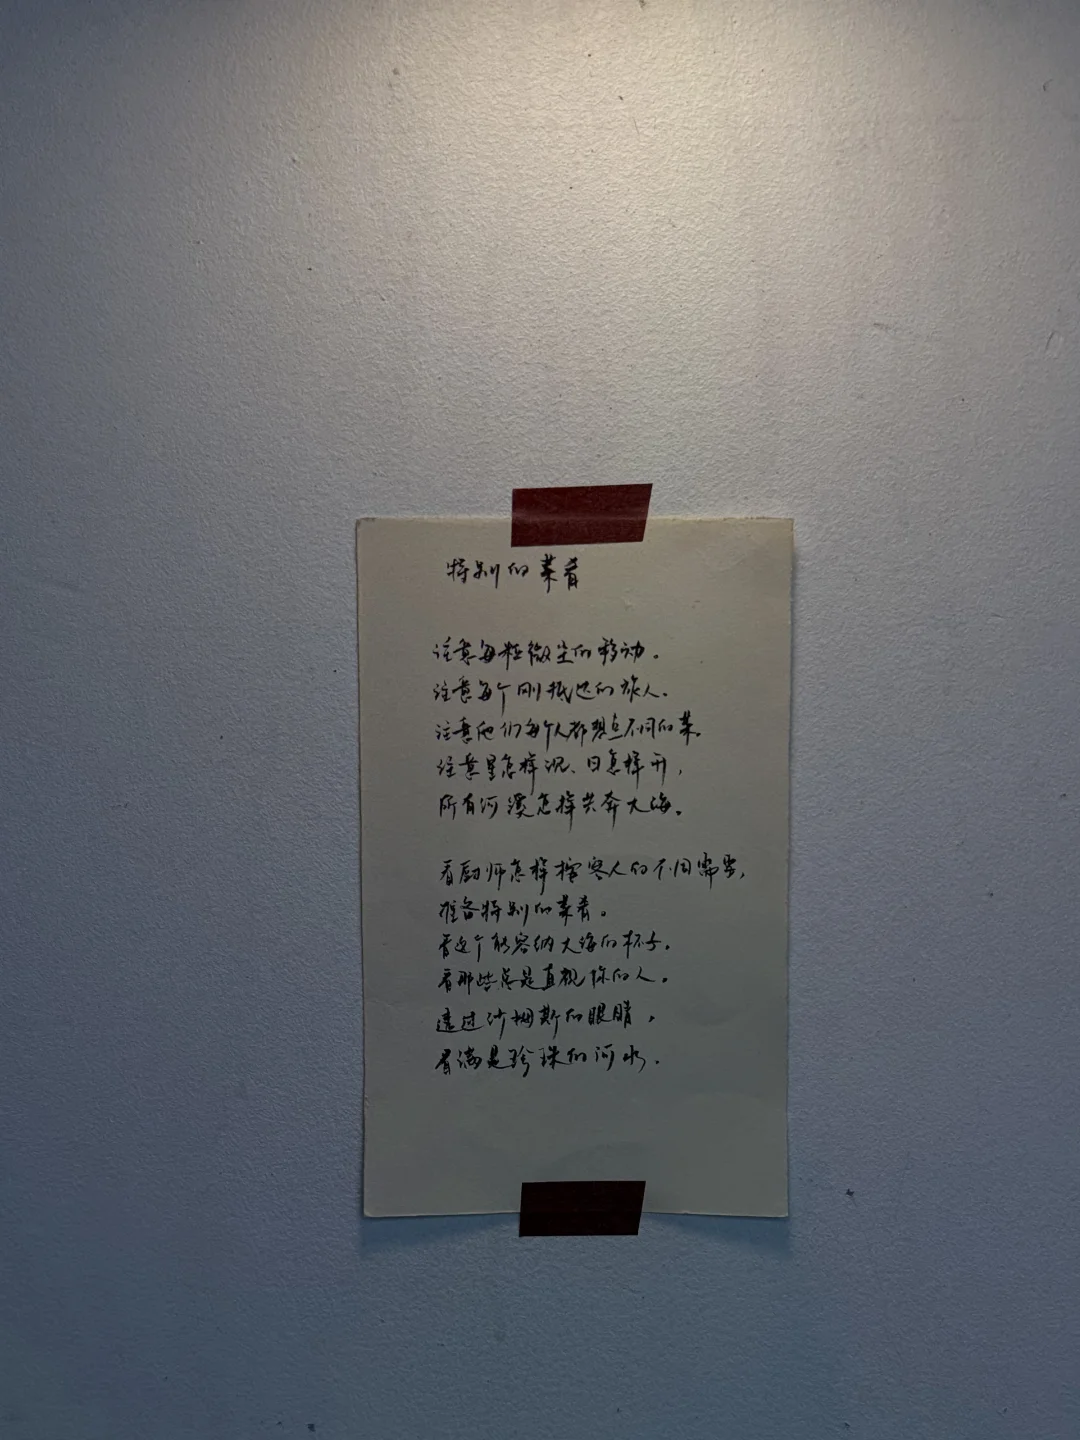 特别的菜肴
注意每粒微尘的移动。
注意每个刚抵达的旅人。
注意他们每个人都想点不同的菜。
注意星怎样沉、日怎样升，
所有河溪怎样共奔大海。
看厨师怎样按客人的不同需要，
准备特别的菜肴。
看这个能容纳大海的杯子。
看那些总是直视你的人。
透过沙姆斯的眼睛，
看满是珍珠的河水。